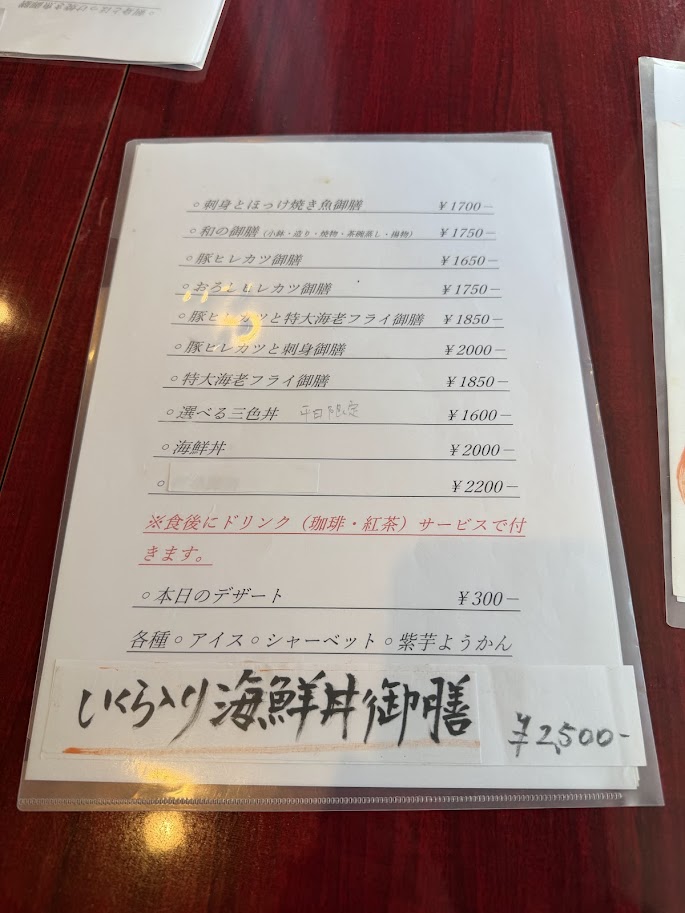 ○刺身とほっけ焼き魚御膳 ￥1700－
○和の御膳（小鉢・造り・焼物・茶碗蒸し・揚物） ￥1750－
○豚ヒレカツ御膳 ￥1650－
○おろしヒレカツ御膳 ￥1750－
○豚ヒレカツと特大海老フライ御膳 ￥1850－
○豚ヒレカツと刺身御膳 ￥2000－
○特大海老フライ御膳 ￥1850－
○選べる三色丼 平日限定 ￥1600－
○海鮮丼 ￥2000－
○ ￥2200－
※食後にドリンク（珈琲・紅茶）サービスで付
きます。
○本日のデザート ￥300－
各種○アイス○シャーベット○紫芋ようかん
いくら入り海鮮丼御膳 ¥2,500-